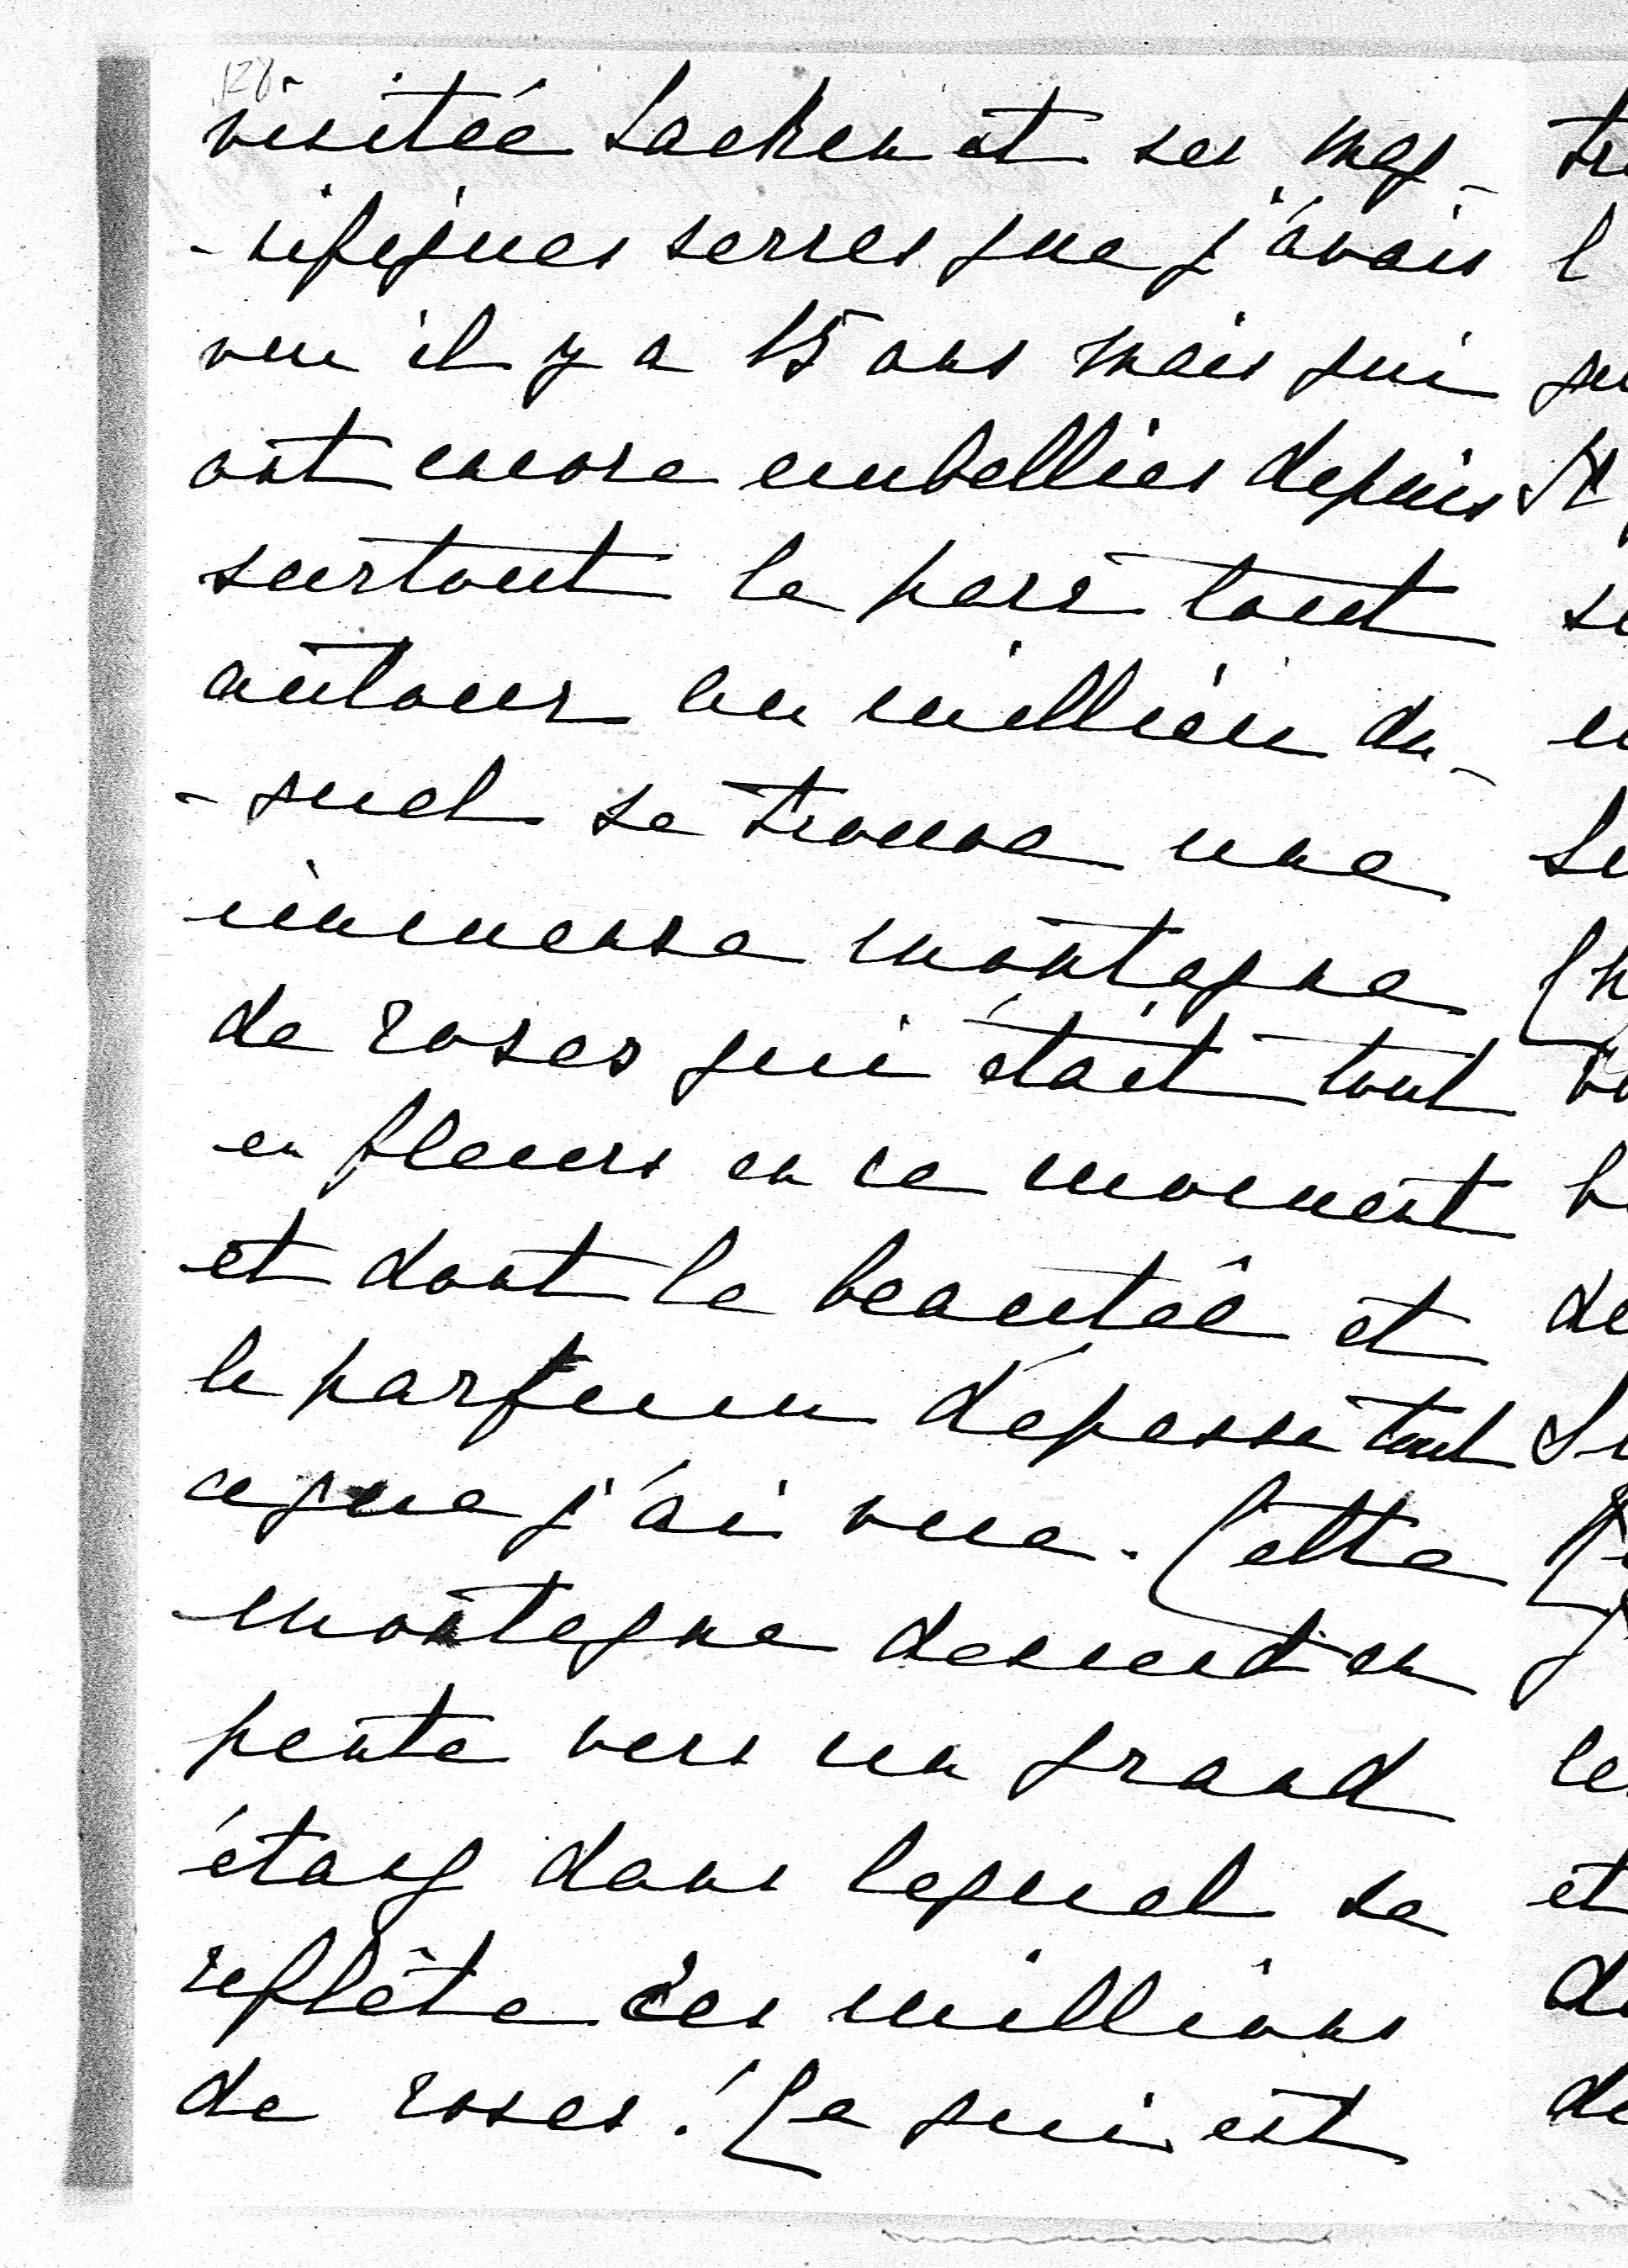 128
visitée Laeken et ses mag-
-nifiques serres que j'avais
vu il y a 15 ans mais qui
ont encore embellies depuis
surtout le parc tout
autour au millieu du-
-quel se trouve une
immense montagne
de roses qui était tout
en fleurs en ce moment
et dont la beautée et
le parfum dépasse tout
ce que j'ai vue. Cette
montagne descend en
pente vers un grand
étang dans lequel se
reflête ces millions
de roses! Ce qui est